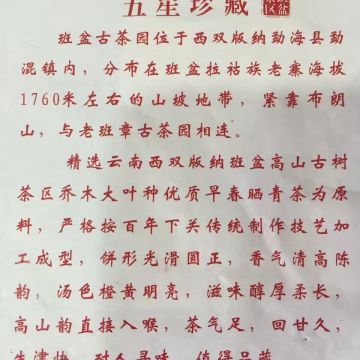 五星珍藏
班盆古茶园位于西双版纳勐海县勐
混镇内，分布在班盆拉祜族老寨海拔
1760米左右的山坡地带，紧靠布朗
山，与老班章古茶园相连。
精选云南西双版纳班盆高山古树
茶区乔木大叶种优质早春晒青茶为原
料，严格按百年下关传统制作技艺加
工成型，饼形光滑圆正，香气清高陈
韵，汤色橙黄明亮，滋味醇厚柔长，
高山韵直接入喉，茶气足，回甘久，
生津快，耐人寻味，值得品藏